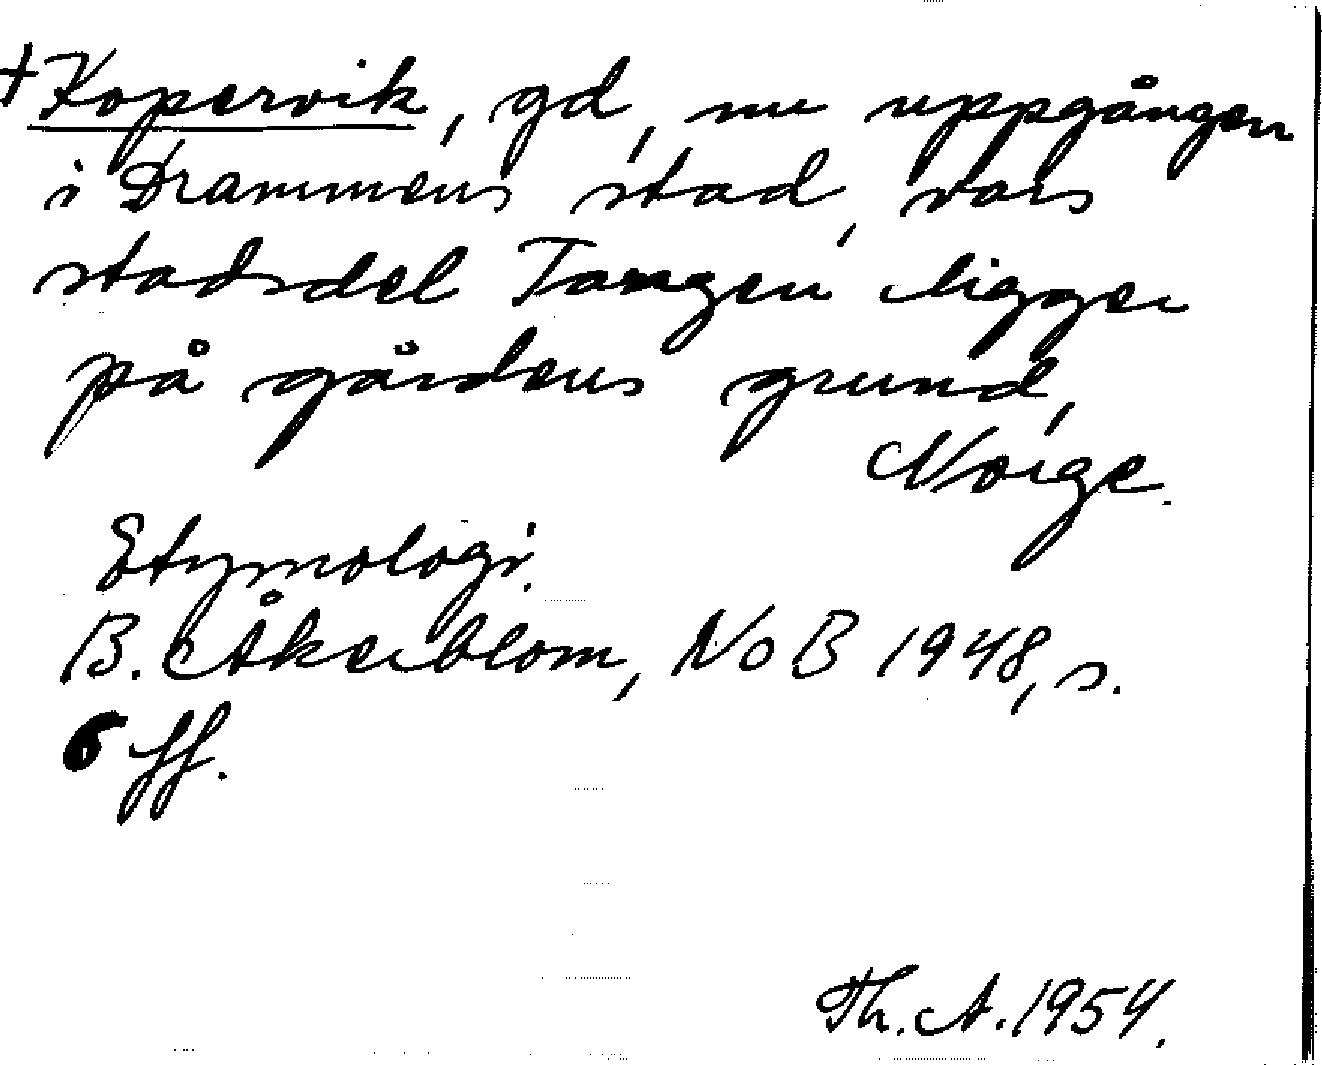 +Kopervik, gd, nu uppgången
i Drammens stad, vars
stadsdel Tangen ligger
på gårdens grund,
Norge.
Etymologi.
B. Åkerblom, NoB 1948, s.
6 ff.
Th. A. 1954.